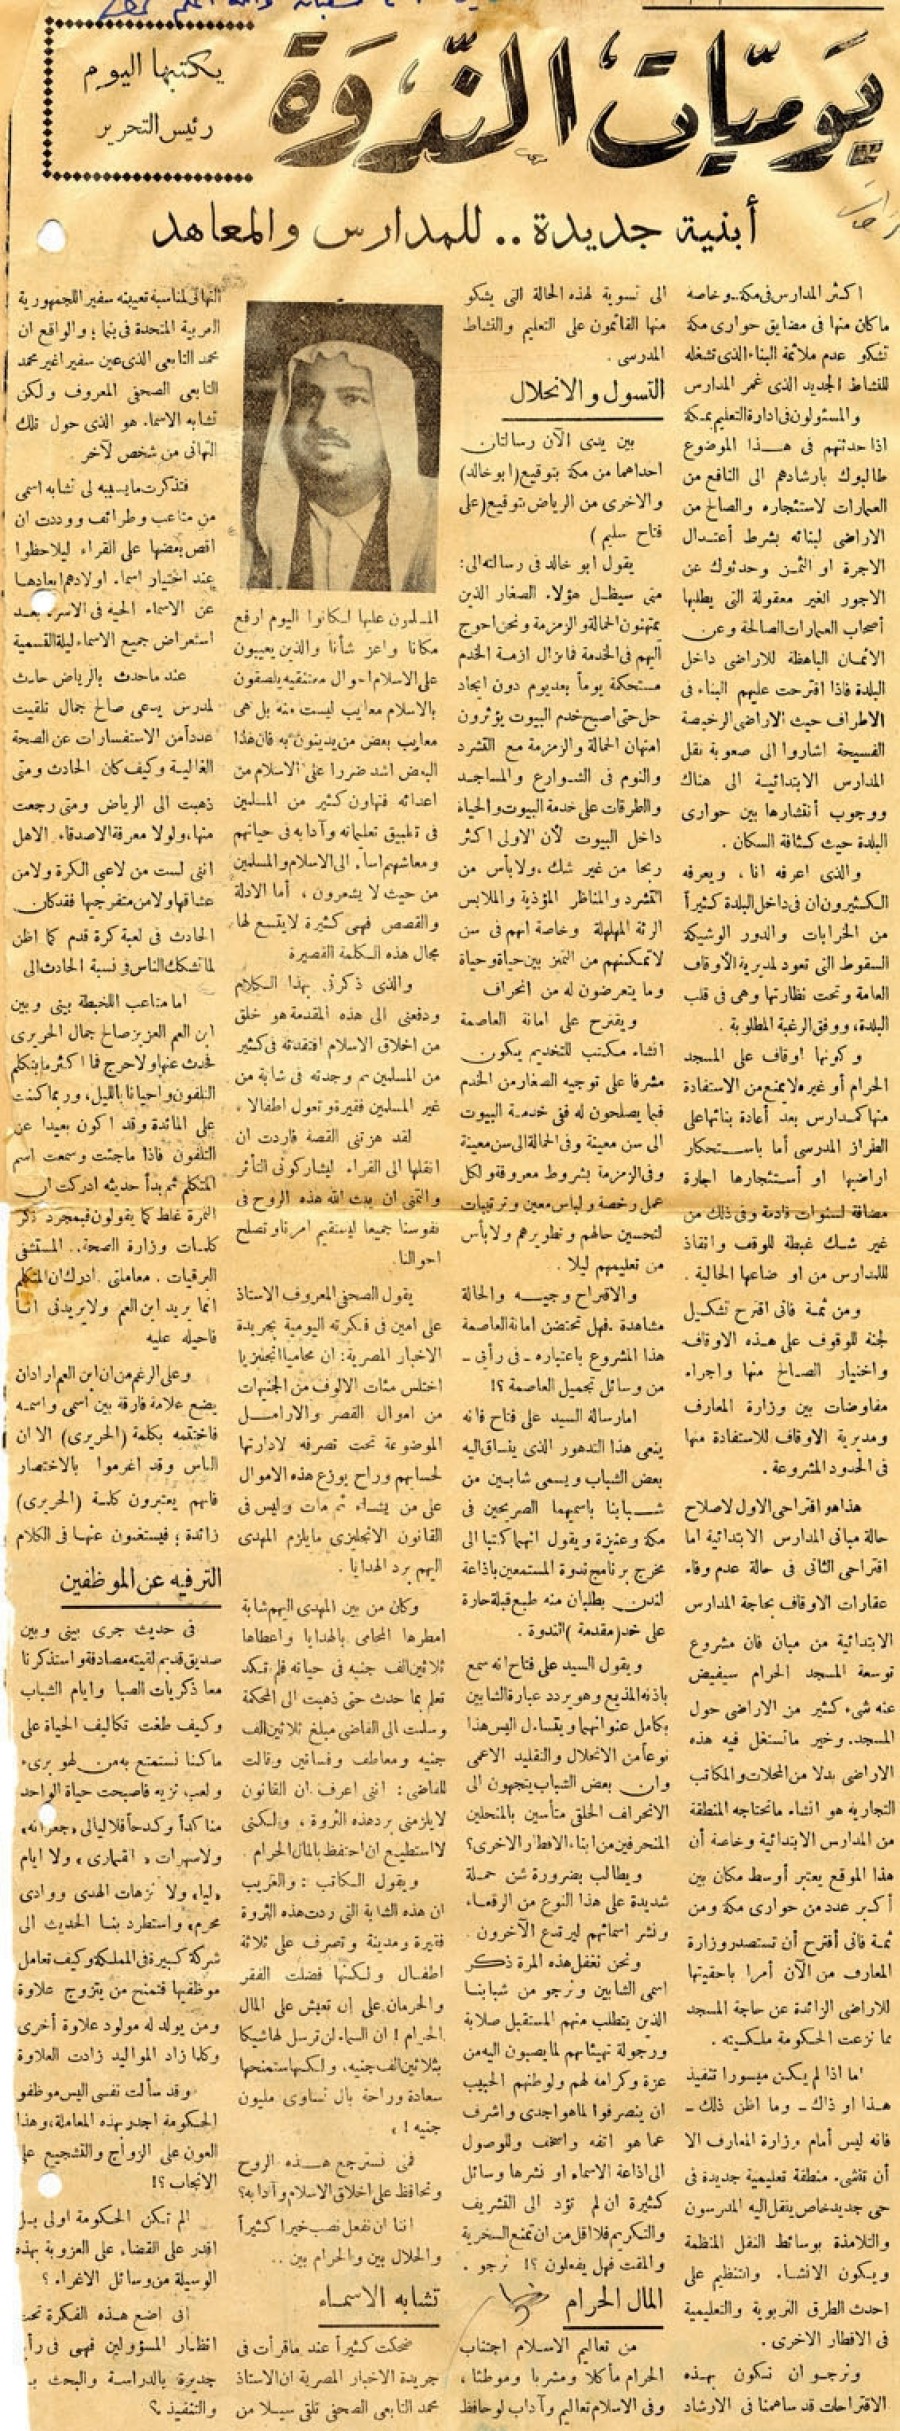 يوميات الندوة
يكتبها اليوم
رئيس التحرير
أبنية جديدة .. للمدارس والمعاهد
اكثر المدارس فى مكة .. وخاصة
ما كان منها فى مضايق حوارى مكة
تشكو عدم ملائمة البناء الذى تشغله
للنشاط الجديد الذى غمر المدارس
والمسئولون فى ادارة التعليم بمكة
اذا حدثتهم فى هذا الموضوع
طالبوك بارشادهم الى النافع من
العمارات لاستئجاره والصالح من
الاراضى لبنائه بشرط أعتدال
الاجرة او الثمن وحدثوك عن
الاجور الغير معقولة التى يطلبها
أصحاب العمارات الصالحة وعن
الاثمان الباهظة للاراضى داخل
البلدة فاذا اقترحت عليهم البناء فى
الاطراف حيث الاراضى الرخيصة
الفسيحة اشاروا الى صعوبة نقل
المدارس الابتدائية الى هناك
ووجوب أنتشارها بين حوارى
البلدة حيث كثافة السكان .
والذى اعرفه انا ، ويعرفه
الكثيرون ان فى داخل البلدة كثيراً
من الخرابات والدور الوشيكة
السقوط التى تعود لمديرية الأوقاف
العامة وتحت نظارتها وهى فى قلب
البلدة، ووفق الرغبة المطلوبة .
وكونها اوقاف على المسجد
الحرام أو غيره لا يمنع من الاستفادة
منها كمدارس بعد أعادة بنائها على
الطراز المدرسى أما باستحكار
اراضيها او أستئجارها اجارة
مضافة لسنوات قادمة وفى ذلك من
غير شك غبطة للوقف وانقاذ
للمدارس من اوضاعها الحالية .
ومن ثمة فانى اقترح تشكيل
لجنة للوقوف على هذه الاوقاف
واختيار الصالح منها واجراء
مفاوضات بين وزارة المعارف
ومديرية الاوقاف للاستفادة منها
فى الحدود المشروعة .
هذا هو اقتراحى الاول لاصلاح
حالة مبانى المدارس الابتدائية اما
اقتراحى الثانى فى حالة عدم وفاء
عقارات الاوقاف بحاجة المدارس
الابتدائية من مبان فان مشروع
توسعة المسجد الحرام سيفيض
عنه شىء كثير من الاراضى حول
المسجد. وخير ما تستغل فيه هذه
الاراضى بدلا من المحلات والمكاتب
التجارية هو انشاء ما تحتاجه المنطقة
من المدارس الابتدائية وخاصة أن
هذا الموقع يعتبر أوسط مكان بين
أكبر عدد من حوارى مكة ومن
ثمة فانى أقترح أن تستصدر وزارة
المعارف من الآن أمرا باحقيتها
للاراضى الزائدة عن حاجة المسجد
بما نزعت الحكومة ملكيته .
اما اذا لم يكن ميسورا تنفيذ
هذا او ذاك - وما اظن ذلك -
فانه ليس أمام وزارة المعارف الا
أن تنشىء منطقة تعليمية جديدة فى
حى جديد خاص ينقل اليه المدرسون
والتلامذة بوسائط النقل المنظمة
ويكون الانشاء والتنظيم على
احدث الطرق التربوية والتعليمية
فى الاقطار الاخرى .
ونرجو ان نكون بهذه
الاقتراحات قد ساهمنا فى الارشاد
الى تسوية لهذه الحالة التى يشكو
منها القائمون على التعليم والنشاط
المدرسى .
التسول والانحلال
بين يدى الآن رسالتان
احداهما من مكة بتوقيع (ابو خالد)
والاخرى من الرياض بتوقيع (على
فتاح سليم)
يقول ابو خالد فى رسالته الى:
متى سيظل هؤلاء الصغار الذين
يمتهنون الحمالة والزمزمة ونحن احوج
اليهم فى الخدمة فما تزال ازمة الخدم
مستحكمة يوماً بعد يوم دون ايجاد
حل حتى اصبح خدم البيوت يؤثرون
امتهان الحمالة والزمزمة مع التشرد
والنوم فى الشوارع والمساجد
والطرقات على خدمة البيوت والحياة
داخل البيوت لأن الاولى اكثر
ربحا من غير شك ، ولا بأس من
التشرد والمناظر المؤذية والملابس
الرثة المهلهلة وخاصة انهم فى سن
لا تمكنهم من التميز بين حياة وحياة
وما يتعرضون له من انحراف
ويقترح على امانة العاصمة
انشاء مكتب للتخديم يكون
مشرفا على توجيه الصغار من الخدم
فيما يصلحون له ففى خدمة البيوت
الى سن معينة وفى الحمالة الى سن معينة
وفى الزمزمة بشروط معروفة ولكل
عمل رخصة ولباس معين وترتيبات
لتحسين حالهم وتطويرهم ولا بأس
من تعليمهم ليلا .
والاقتراح وجيه والحالة
مشاهدة . فهل تحتضن امانة العاصمة
هذا المشروع باعتباره - فى رأيى -
من وسائل تجميل العاصمة ؟!
اما رسالة السيد على فتاح فانه
ينعى هذا التدهور الذى ينساق اليه
بعض الشباب ويسمى شابين من
شبابنا باسميهما الصريحين فى
مكة وعنيزة ويقول انهما كتبا الى
مخرج برنامج ندوة المستمعين باذاعة
لندن يطلبان منه طبع قبلة حارة
على خد (مقدمة) الندوة .
ويقول السيد على فتاح انه سمع
باذنه المذيع وهو يردد عبارة الشابين
بكامل عنوانهما ويتساءل اليس هذا
نوعاً من الانحلال والتقليد الاعمى
وان بعض الشباب يتجهون الى
الانحراف الخلقى متأسين بالمنحلين
المنحرفين من ابناء الاقطار الاخرى؟
ويطالب بضرورة شن حملة
شديدة على هذا النوع من الرقعاء
ونشر اسمائهم ليرتدع الآخرون .
ونحن نغفل هذه المرة ذكر
اسمى الشابين ونرجو من شبابنا
الذين يتطلب منهم المستقبل صلابة
ورجولة تهيئانهم لما يصبون اليه من
عزة وكرامة لهم ولوطنهم الحبيب
ان ينصرفوا لما هو اجدى واشرف
عما هو اتفه واسخف وللوصول
الى اذاعة الاسماء او نشرها وسائل
كثيرة ان لم تؤد الى التشريف
والتكريم فلا اقل من ان تمنع السخرية
والمقت فهل يفعلون ؟! نرجو .
المال الحرام
من تعاليم الاسلام اجتناب
الحرام مأكلا ومشربا وموطئا ،
وفى الاسلام تعاليم وآداب لو حافظ
المسلمون عليها لكانوا اليوم ارفع
مكانا واعز شأنا والذين يعيبون
على الاسلام احوال معتنقيه يلصقون
بالاسلام معايب ليست منه بل هى
معايب بعض من يدينون به فان هذا
البعض اشد ضررا على الاسلام من
اعدائه فتهاون كثير من المسلمين
فى تطبيق تعليماته وآدابه فى حياتهم
ومعاشهم اساء الى الاسلام والمسلمين
من حيث لا يشعرون ، أما الادلة
والقصص فهى كثيرة لا يتسع لها
مجال هذه الكلمة القصيرة
والذى ذكرنى بهذا الكلام
ودفعنى الى هذه المقدمة هو خلق
من اخلاق الاسلام افتقدته فى كثير
من المسلمين ثم وجدته فى شابة من
غير المسلمين فقيرة وتعول اطفالا .
لقد هزتنى القصة فاردت ان
انقلها الى القراء ليشاركونى التأثر
والتمنى ان يبث الله هذه الروح فى
نفوسنا جميعا ليستقيم امرنا وتصلح
احوالنا .
يقول الصحفى المعروف الاستاذ
على امين فى فكرته اليومية بجريدة
الاخبار المصرية: ان محاميا انجليزيا
اختلس مئات الالوف من الجنيهات
من اموال القصر والارامل
الموضوعة تحت تصرفه لادارتها
لحسابهم وراح يوزع هذه الاموال
على من يشاء ثم مات وليس فى
القانون الانجليزى ما يلزم المهدى
اليهم برد الهدايا .
وكان من بين المهدى اليهم شابة
امطرها المحامى بالهدايا واعطاها
ثلاثين الف جنيه فى حياته فلم تكد
تعلم بما حدث حتى ذهبت الى المحكمة
وسلمت الى القاضى مبلغ ثلاثين الف
جنيه ومعاطف وفساتين وقالت
للقاضى : اننى اعرف ان القانون
لا يلزمنى برد هذه الثروة ، ولكنى
لا استطيع ان احتفظ بالمال الحرام .
ويقول الكاتب : والغريب
ان هذه الشابة التى ردت هذه الثروة
فقيرة ومدينة وتصرف على ثلاثة
اطفال ولكنها فضلت الفقر
والحرمان على ان تعيش على المال
الحرام ! ان السماء لن ترسل لها شيكا
بثلاثين الف جنيه ، ولكنها ستمنحها
سعادة وراحة بال تساوى مليون
جنيه ! .
فمتى نسترجع هذه الروح
ونحافظ على اخلاق الاسلام وآدابه؟
اننا ان نفعل نصب خيرا كثيراً
والحلال بين والحرام بين ..
تشابه الاسماء
ضحكت كثيراً عند ما قرأت فى
جريدة الاخبار المصرية ان الاستاذ
محمد التابعى الصحفى تلقى سيلا من
التهانى لمناسبة تعيينه سفير اللجمهورية
العربية المتحدة فى ؛ والواقع ان
محمد التابعى الذى عين سفير اغير محمد
التابعى الصحفى المعروف ولكن
تشابه الاسماء هو الذى حول تلك
التهانى من شخص لآخر .
فتذكرت ما يسببه لى تشابه اسمى
من متاعب وطرائف ووددت ان
اقص بعضها على القراء ليلاحظوا
عند اختيار اسماء اولادهم ابعادها
عن الاسماء الحية فى الاسرة بعد
استعراض جميع الاسماء ليلة التسمية
عند ما حدث بالرياض حادث
لمدرس يدعى صالح جمال تلقيت
عدداً من الاستفسارات عن الصحة
الغالية وكيف كان الحادث ومتى
ذهبت الى الرياض ومتى رجعت
منها، ولولا معرفة الاصدقاء الاهل
اننى لست من لاعبى الكرة ولا من
عشاقها ولا من متفرجيها فقد كان
الحادث فى لعبة كرة قدم كما اظن
لما تشكك الناس فى نسبة الحادث الى
اما متاعب اللخبطة بينى وبين
ابن العم العزيز صالح جمال الحريرى
فحدث عنها ولا حرج فما اكثر ما يتكلم
التلفون واحيانا بالليل، وربما كنت
على المائدة وقد اكون بعيدا عن
التلفون فاذا ما جئت وسمعت اسم
المتكلم ثم بدأ حديثه ادركت ان
النمرة غلط كما يقولون فبمجرد ذكر
كلمات وزارة الصحة .. المستشفى
البرقيات . معاملتى ادرك ان المتكلم
انما يريد ابن العم ولا يريدنى انا
فاحيله عليه
وعلى الرغم من ان ابن العم اراد ان
يضع علامة فارقة بين اسمى واسمه
فاختتمه بكلمة (الحريرى) الا ان
الناس وقد اغرموا بالاختصار
فانهم يعتبرون كلمة (الحريرى)
زائدة ؛ فيستغنون عنها فى الكلام
الترفيه عن الموظفين
فى حديث جرى بينى وبين
صديق قديم لقيته مصادفة واستذكرنا
معا ذكريات الصبا وايام الشباب
وكيف طغت تكاليف الحياة على
ما كنا نستمتع به من لهو برىء
ولعب نزيه فاصبحت حياة الواحد
منا كداً وكدحاً فلا ليالى «جعرانه»
ولا سهرات ولا ايام
ولا نزهات الهدى ووادى
محرم، واستطرد بنا الحديث الى
شركة كبيرة فى المملكة وكيف تعامل
موظفيها فتمنح من يتزوج علاوة
ومن يولد له مولود علاوة أخرى
وكلما زاد المواليد زادت العلاوة
وقد سألت نفسى اليس موظفو
الحكومة اجدر بهذه المعاملة، وهذا
العون على الزواج والتشجيع على
الانجاب ؟!
الم تكن الحكومة اولى بل
اقدر على القضاء على العزوبة بهذه
الوسيلة من وسائل الاغراء ؟
انى اضع هذه الفكرة تحت
انظار المسؤولين فهى فى رأيى
جديرة بالدراسة والبحث
والتنفيذ .؟